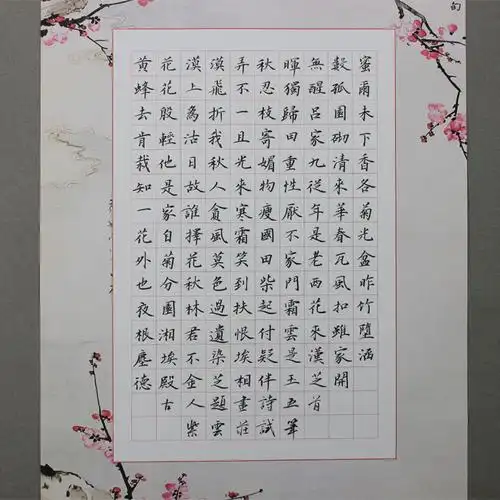 蜜雨未下香各菊光盆昨竹墮涵
穀孤園砌清來華春瓦風扣雖家開
無醒呂家九從年是老西花來漢芝首
暉獨歸田重性厭不家門霜雲是玉五筆
秋忍枝寄媚物瘦國田柴起付疑伴詩試
弄不一且光來寒霜笑到扶恨埃相畫莊
漠飛折我秋人貪風莫色過遺染芝題雲
漠上為沽日故誰擇花秋林君不金人紫
花花殷輕他是家自菊分園湘埃殿古
黃蜂去肯栽知一花外也夜根塵德